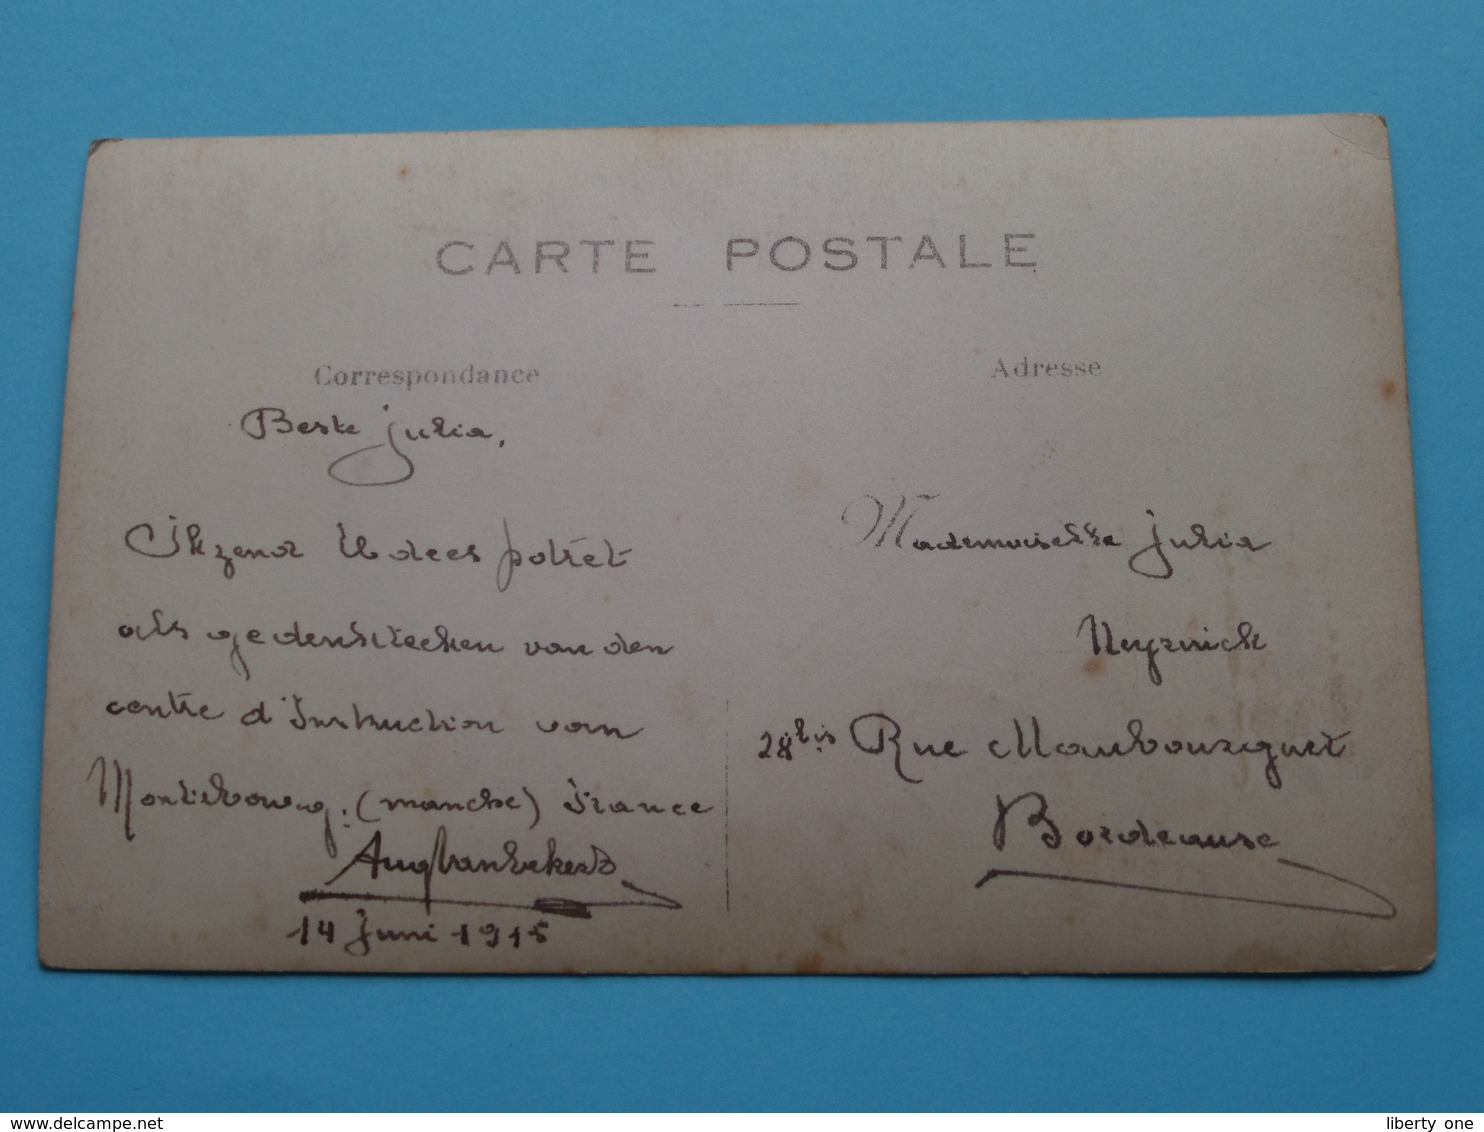 CARTE POSTALE
Correspondance
Adresse
Beste Julia,
Ik zend U dees potret
als gedenkteeken van den
centre d'Instruction van
Montebourg: (manche) France
Aug Van Eekert
14 Juni 1915
Mademoiselle Julia
Neyrnick
28 bis Rue Maubourguet
Bordeause
delcampe.net
liberty one